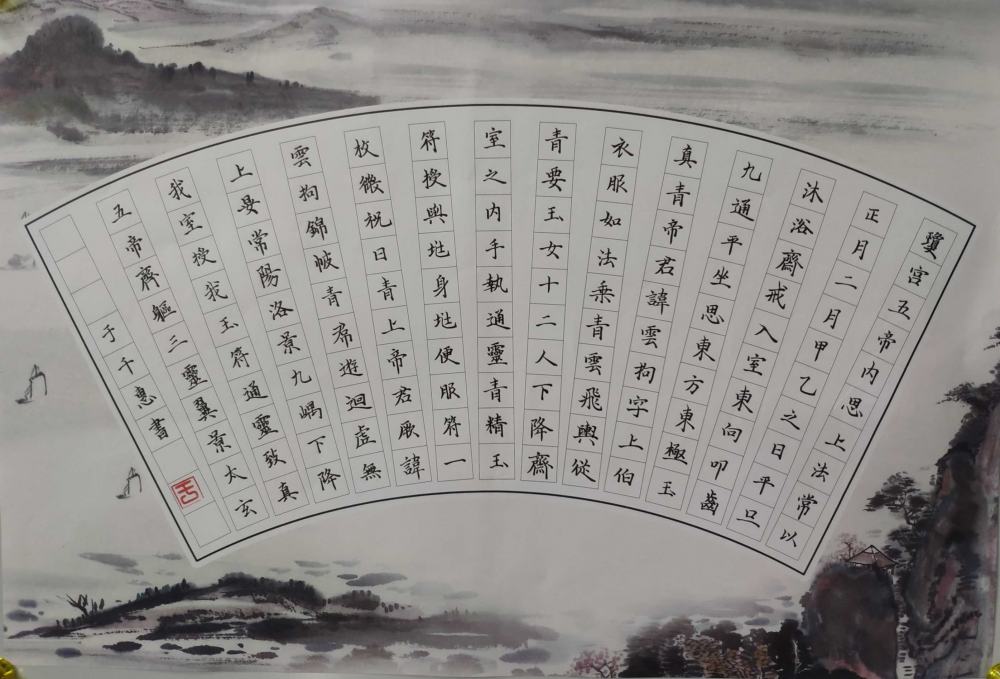 瓊宫五帝内思上法常以
正月二月甲乙之日平旦
沐浴齋戒入室東向叩齒
九通平坐思東方東極玉
真青帝君諱雲拘字上伯
衣服如法乘青雲飛輿従
青要玉女十二人下降齋
室之内手執通靈青精玉
符授與玼身玼便服符一
枚微祝曰青上帝君厥諱
雲拘錦帔青帬遊迴虛無
上晏常陽洛景九嵎下降
我室授我玉符通靈致真
五帝齊軀三靈翼景太玄
于千惠書